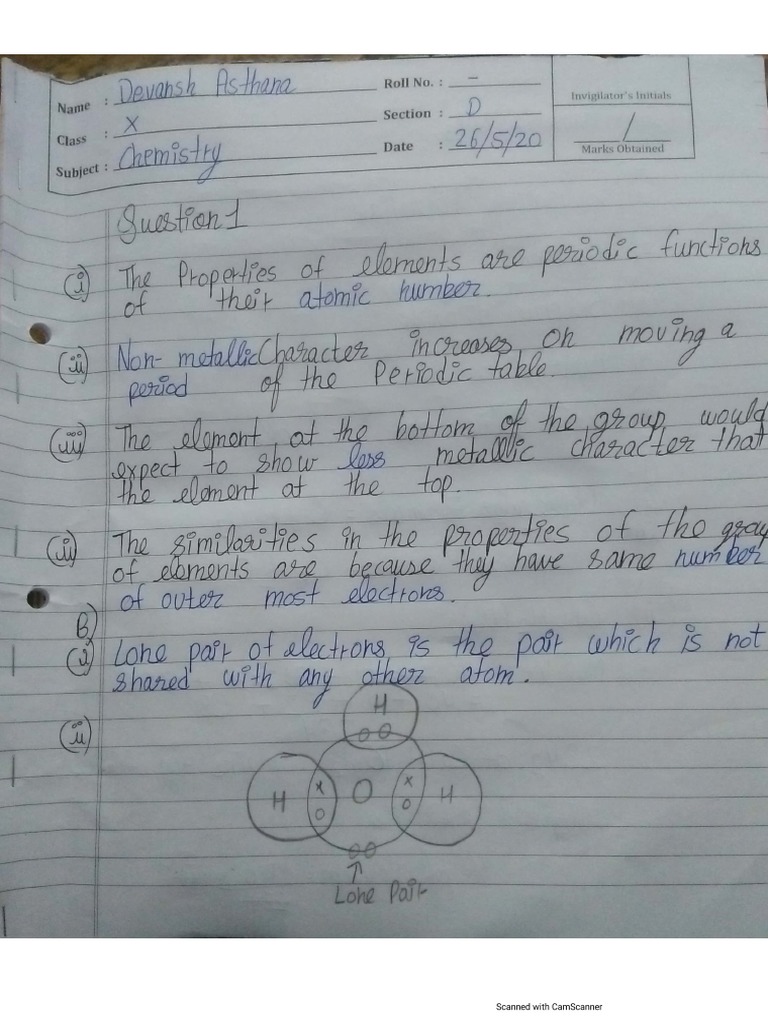 Name : Devansh Asthana
Roll No. : –
Invigilator's Initials
Class : X
Section : D
Subject : Chemistry
Date : 26/5/20
Marks Obtained
Question 1
(i) The Properties of elements are periodic functions
of their atomic number.
(ii) Non-metallic Character increases on moving a
period of the Periodic table.
(iii) The element at the bottom of the group would
expect to show less metallic character that
the element at the top.
(iv) The similarities in the properties of the group
of elements are because they have same number
of outer most electrons.
B)
(i) Lone pair of electrons is the pair which is not
shared with any other atom.
(ii)
H
O O
H x O x H
O O
O O
Lone Pair
Scanned with CamScanner